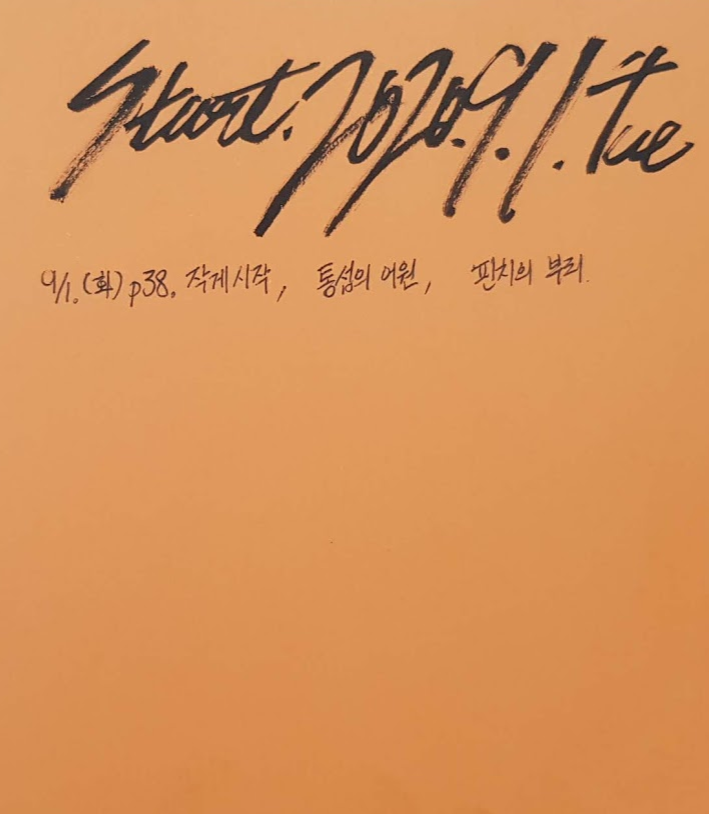 Start. 2020. 9. 1. Tue
9/1. (화) p38. 작게 시작, 통섭의 어원, 핀치의 부리.